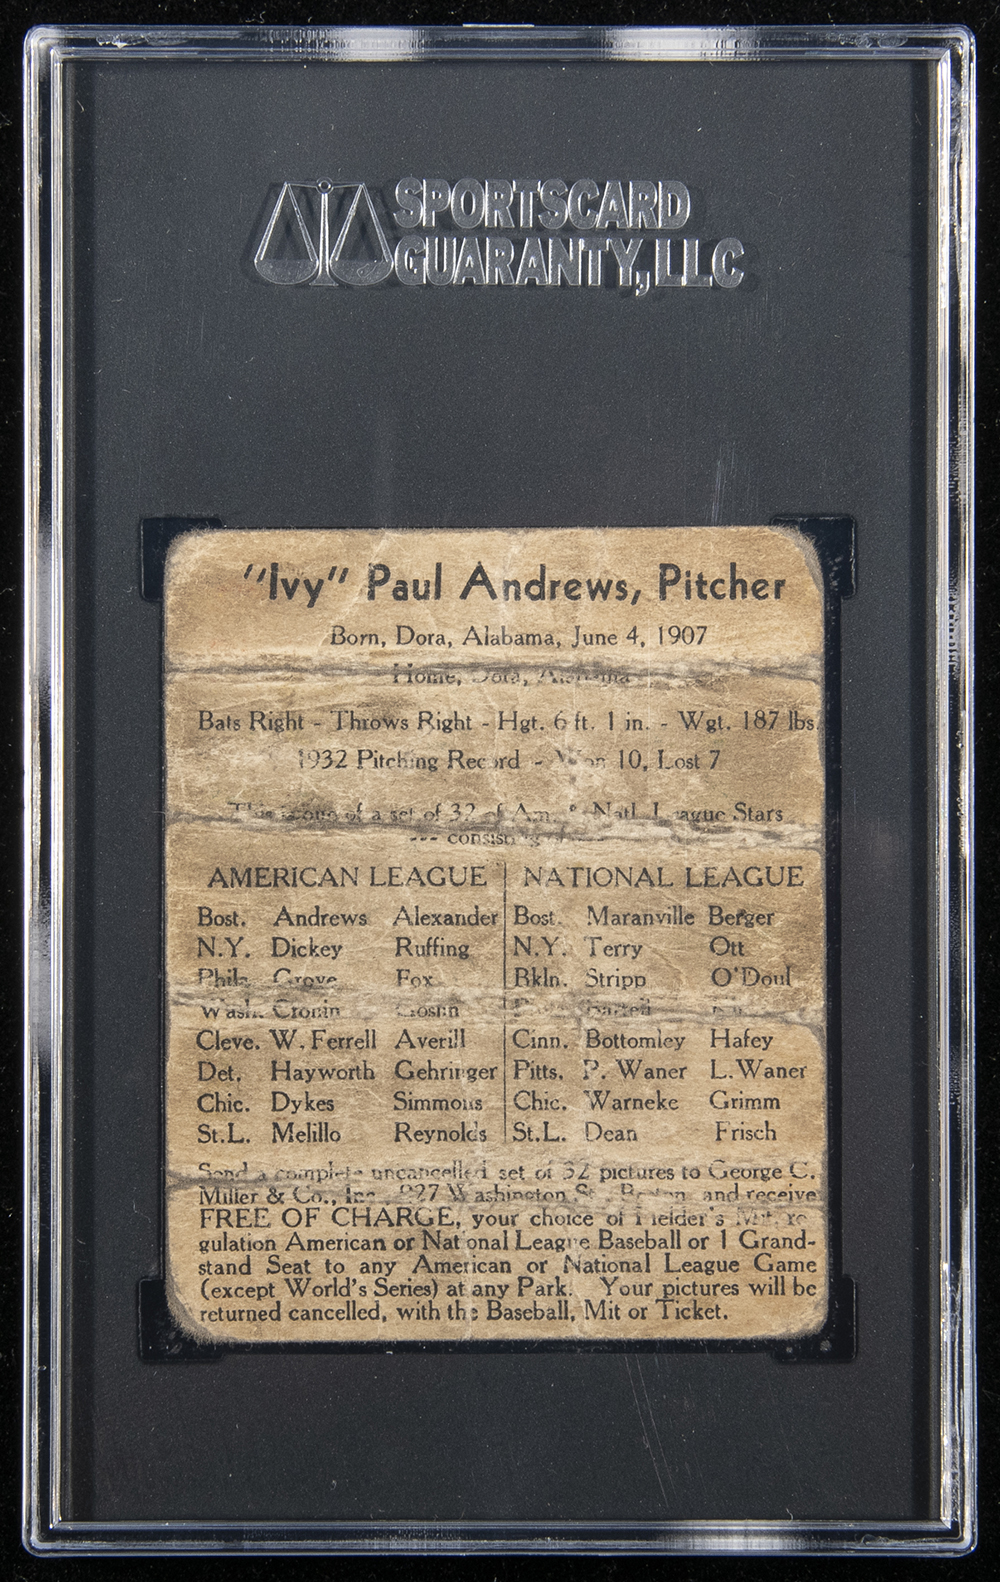 SPORTSCARD
GUARANTY, LLC
"Ivy" Paul Andrews, Pitcher
Born, Dora, Alabama, June 4, 1907
Home, Dora, Alabama
Bats Right - Throws Right - Hgt. 6 ft. 1 in. - Wgt. 187 lbs.
1932 Pitching Record - Won 10, Lost 7
This is one of a set of 32 of Am. & Natl. League Stars
--- consisting of
AMERICAN LEAGUE | NATIONAL LEAGUE
Bost. Andrews Alexander Bost. Maranville Berger
N.Y. Dickey Ruffing N.Y. Terry Ott
Phila. Grove Fox Bkln. Stripp O'Doul
Wash. Cronin Goslin
Cleve. W. Ferrell Averill Cinn. Bottomley Hafey
Det. Hayworth Gehringer Pitts. P. Waner L. Waner
Chic. Dykes Simmons Chic. Warneke Grimm
St.L. Melillo Reynolds St.L. Dean Frisch
Send a complete uncancelled set of 32 pictures to George C.
Miller & Co., Inc., 827 Washington St., Boston and receive
FREE OF CHARGE, your choice of Fielder's Mit, re-
gulation American or National League Baseball or 1 Grand-
stand Seat to any American or National League Game
(except World's Series) at any Park. Your pictures will be
returned cancelled, with the Baseball, Mit or Ticket.